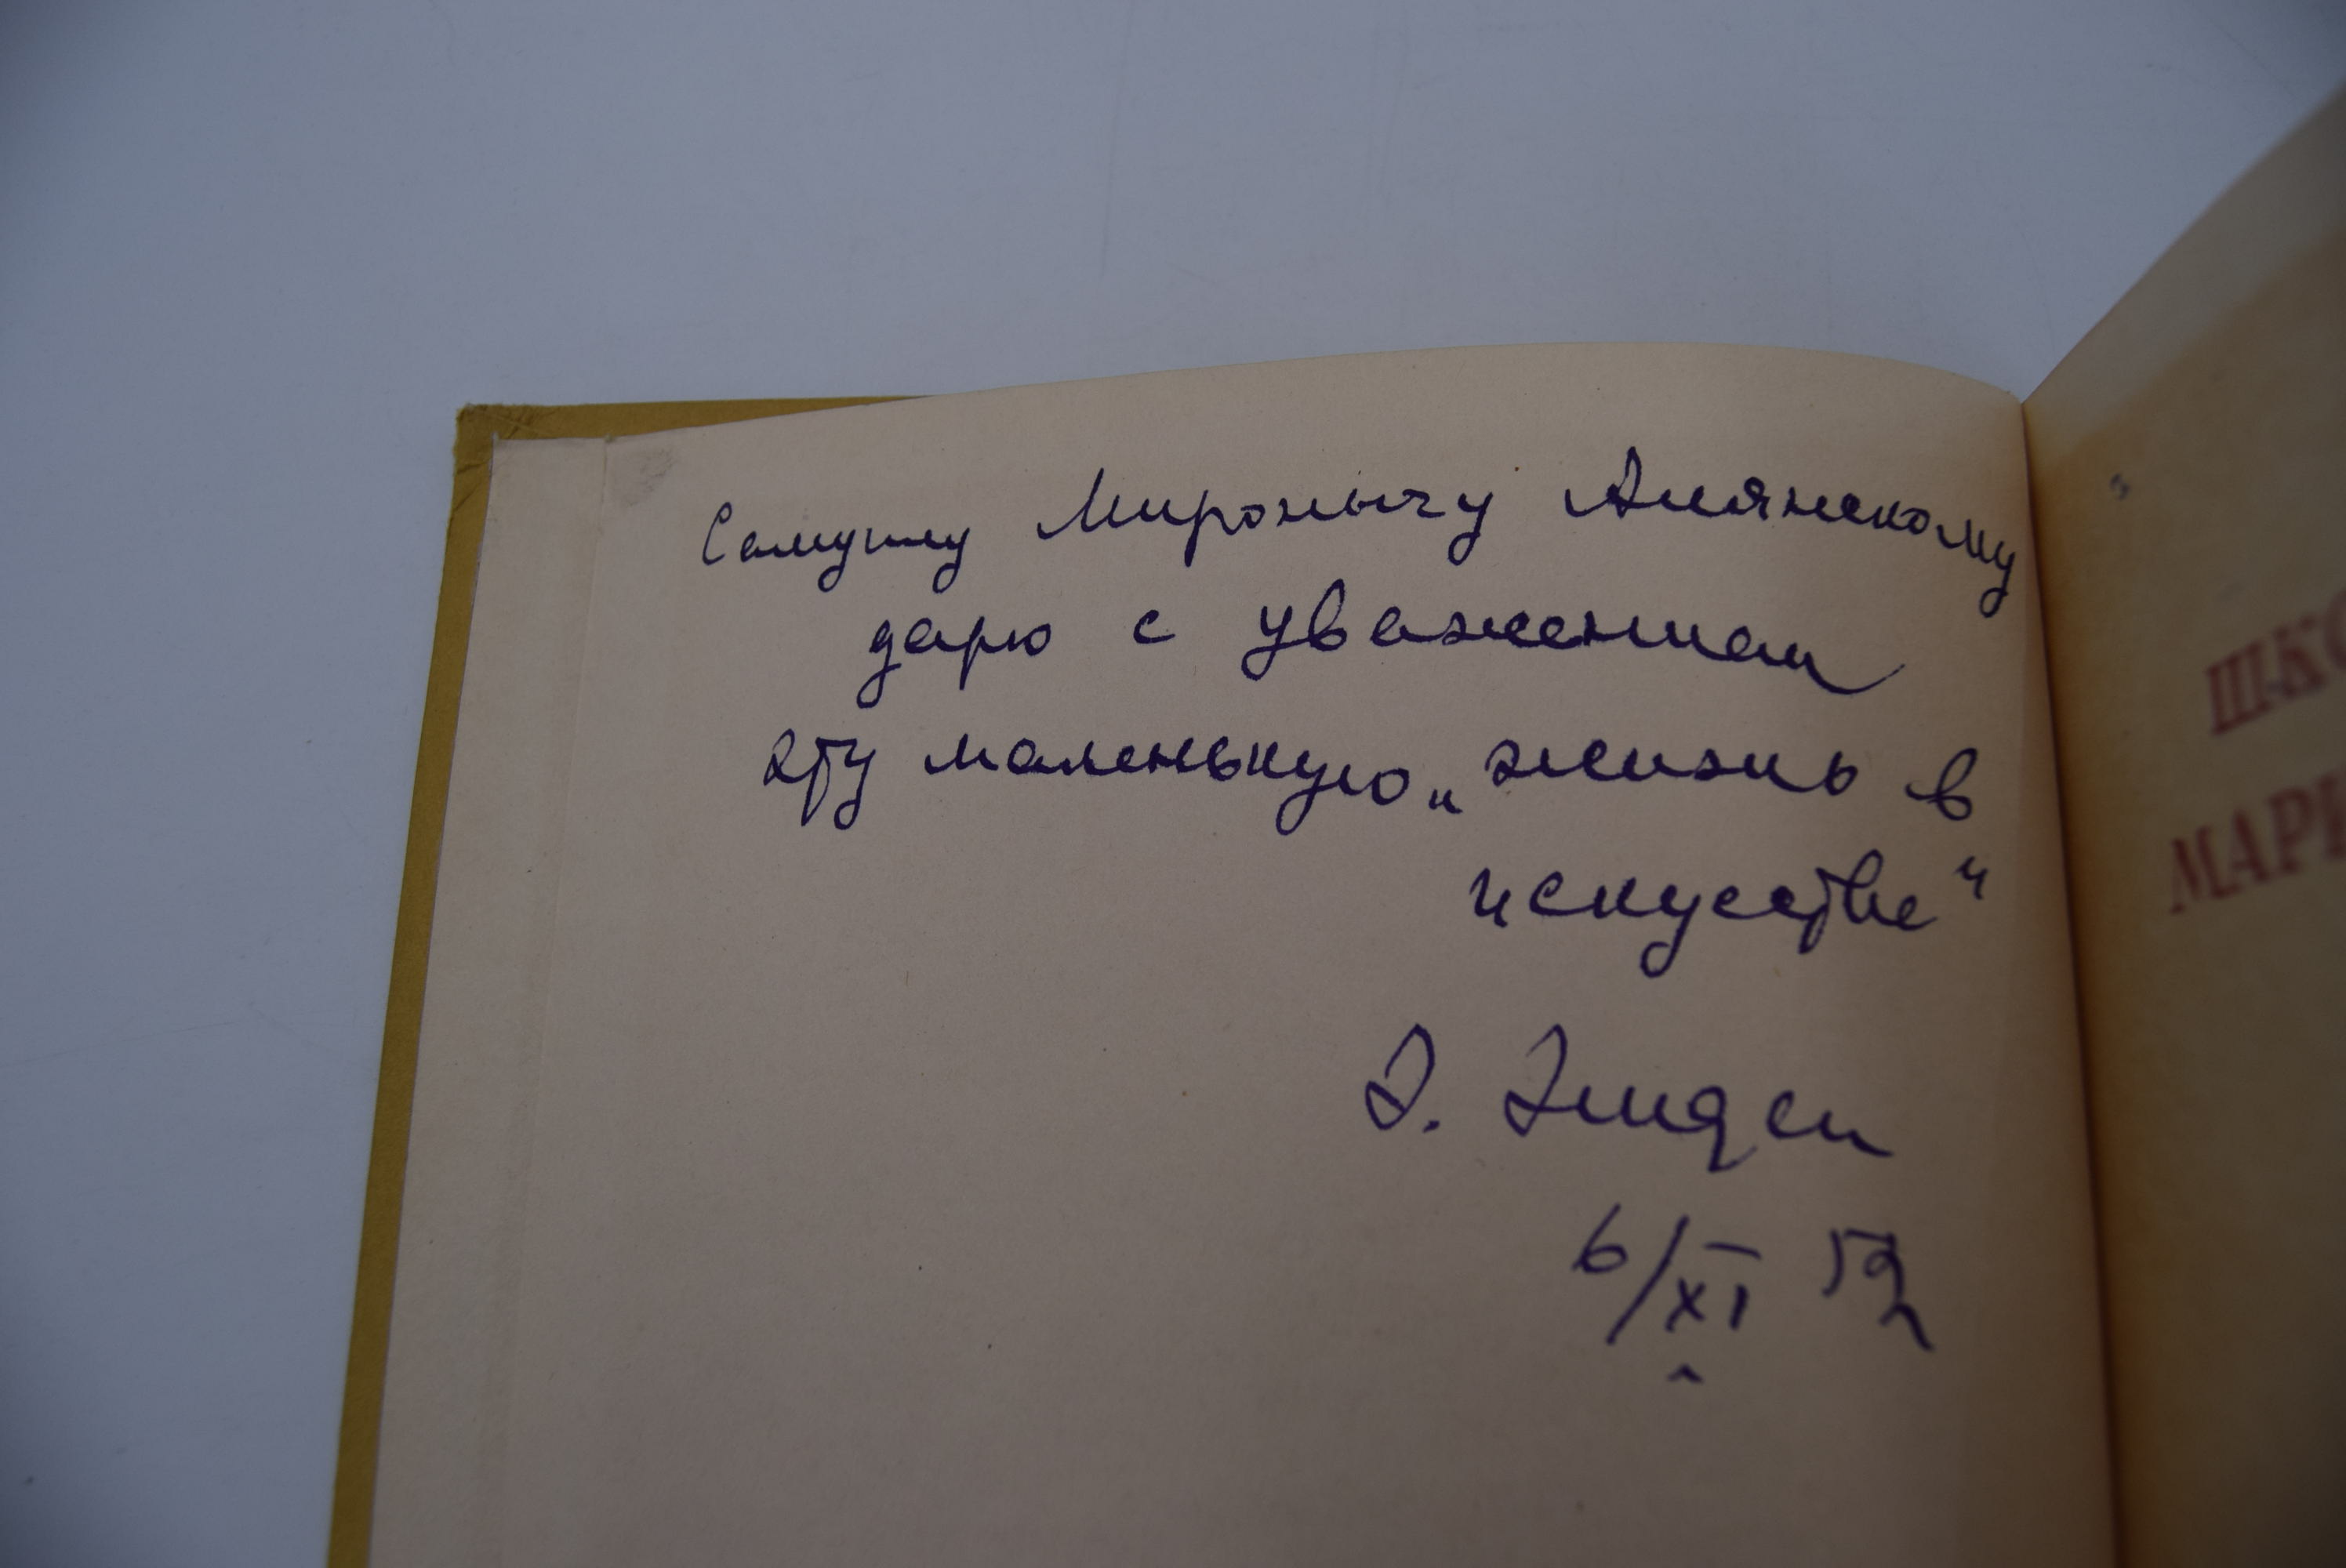 Самуилу Миронычу Алянскому
дарю с уважением
эту маленькую „жизнь в
искусстве“
Э. Эмден
6/XI 52
ШКО
МАРИ